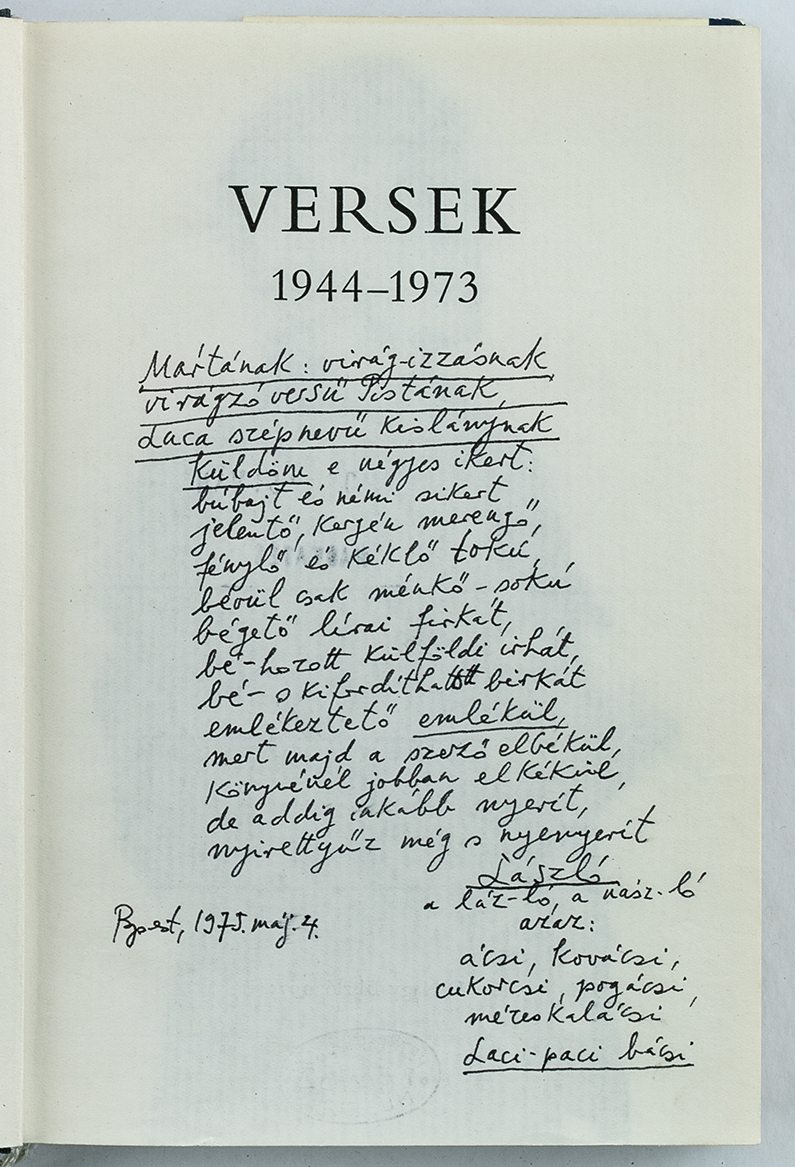 VERSEK
1944–1973
Mártának: virág-izzásnak,
virágzó versű Pistának,
Luca szépnevű kislánynak
küldöm e négyes ikert:
bűbajt és némi sikert
jelentő, kergén merengő,
fénylő és kéklő tokú,
bévül csak ménkő-sokú
bégető lírai firkát,
bé-hozott külföldi irhát,
bé- s kifordítható birkát
emlékeztető emlékül,
mert majd a szerző elbékül,
könyvénél jobban elkékül,
de addig inkább nyerít,
nyirettyűz még s nyenyerít
László
a láz-ló, a nász-ló
azaz:
ácsi, kovácsi,
cukorcsi, pogácsi,
mézeskalácsi
Laci-paci bácsi
Bpest, 1975. máj. 4.